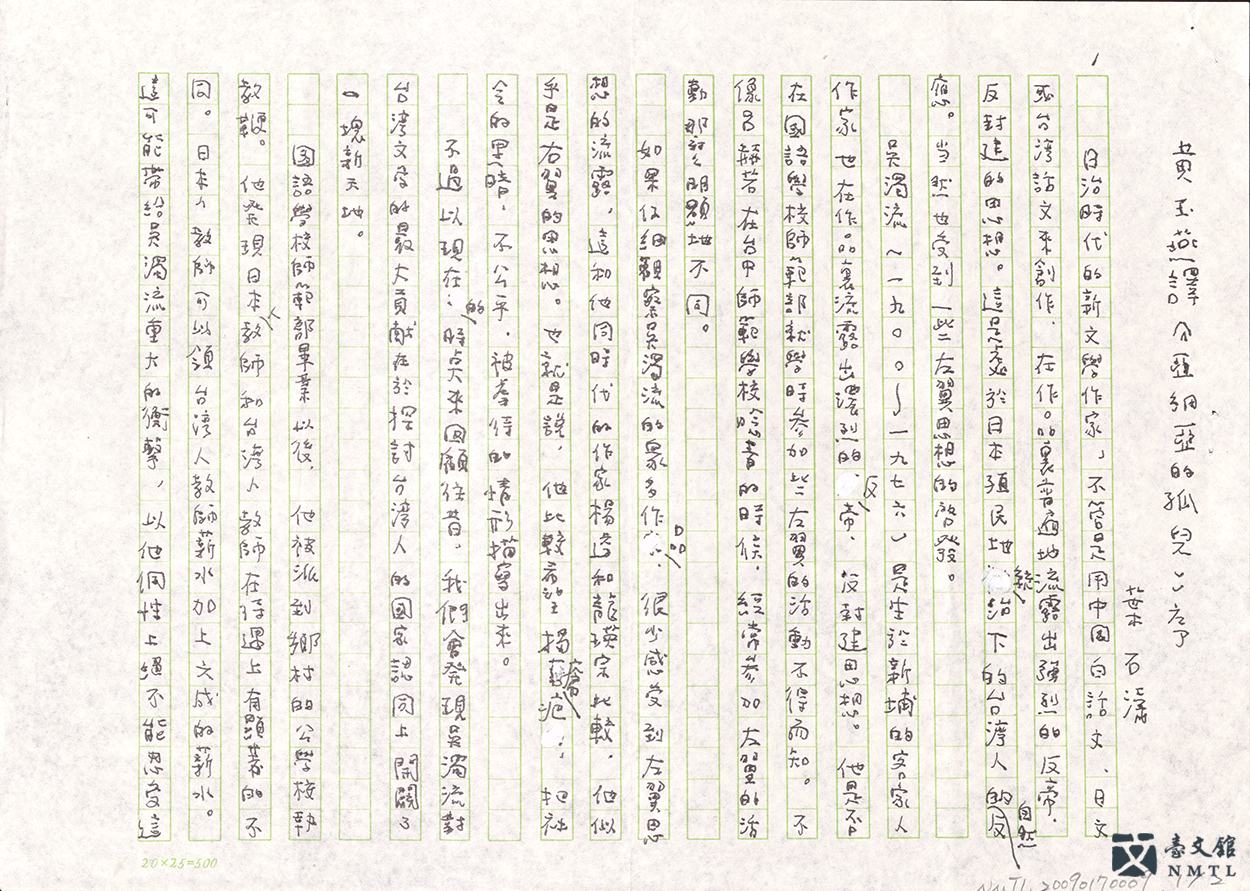 黄玉燕譯介亞細亞的孤兒
葉石濤
1
日治時代的新文學作家，不管是用中国白話文、日文
或台湾話文來創作，在作品裏普遍地流露出强烈的反帝、
反封建的思想。這是處於日本殖民地統治下的台湾人的自然反
應。当然也受到一些左翼思想的啓發。
吴濁流（一九〇〇～一九七六）是生於新埔的客家人
作家也在作品裏流露出强烈的反帝、反封建思想。他是否
在国語學校師範部就學時参加些左翼的活動不得而知。不
像呂赫若在台中師範學校唸書的時候，經常参加左翼的活
動那麽明顕地不同。
如果仔細觀察吴濁流的衆多作品，很少感受到左翼思
想的流露，這和他同時代的作家楊逵和龍瑛宗比較，他似
乎是右翼的思想。也就是說，他比較希望揭發瘡疤，把社
会的黒暗，不公平，被虐待的情形描寫出來。
不過以現在的時点來回顧往昔，我們會発現吴濁流對
台湾文学的最大貢献在於探討台湾人的国家認同上開闢了
一塊新天地。
国語學校師範部畢業以後，他被派到鄉村的公學校執
教鞭。他発現日本人教師和台湾人教師在待遇上有顕著的不
同。日本人教師可以領台湾人教師薪水加上六成的薪水。
這可能带給吴濁流重大的衝擊，以他個性上絕不能忍受這
20×25=500
臺文館
NMTL
NMTL20090170007